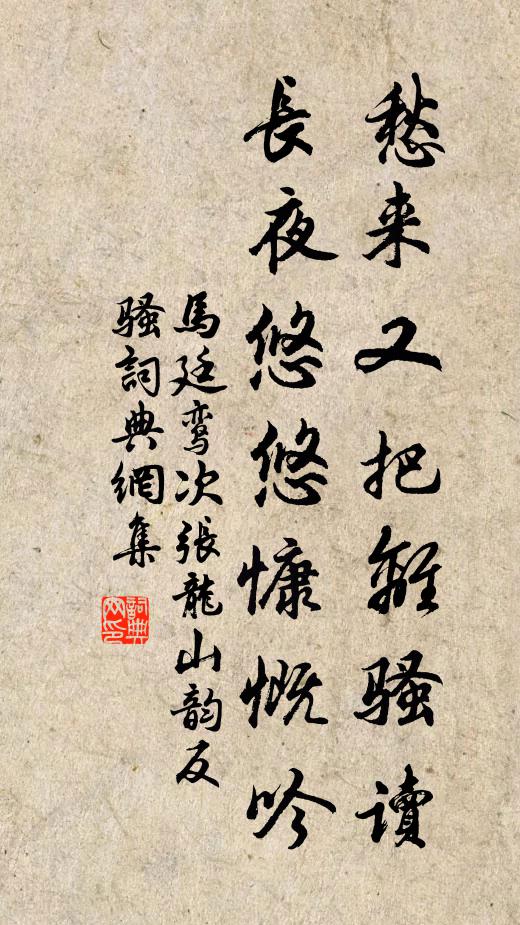 愁来又把離騷讀
長夜悠悠慷慨吟
馬廷鸾次張龍山韵反
騷詞典網集
詞典網印